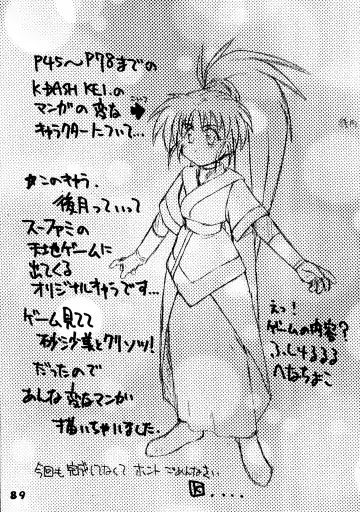 P45～P78までの
K-DASH KEI.の
マンガの変な
こいつ
キャラクターについて…
このキャラ.
後月っていって
スーファミの
天地ゲームに
出てくる
オリジナルキャラです…
ゲーム見てて
砂沙美とクリソツ!
だったので
あんな変なマンガ
描いちゃいました.
えっ!
ゲームの内容?
ふしぎるるる
へなちょこ
今回も
してなくて ホント ごめんなさい
K....
89